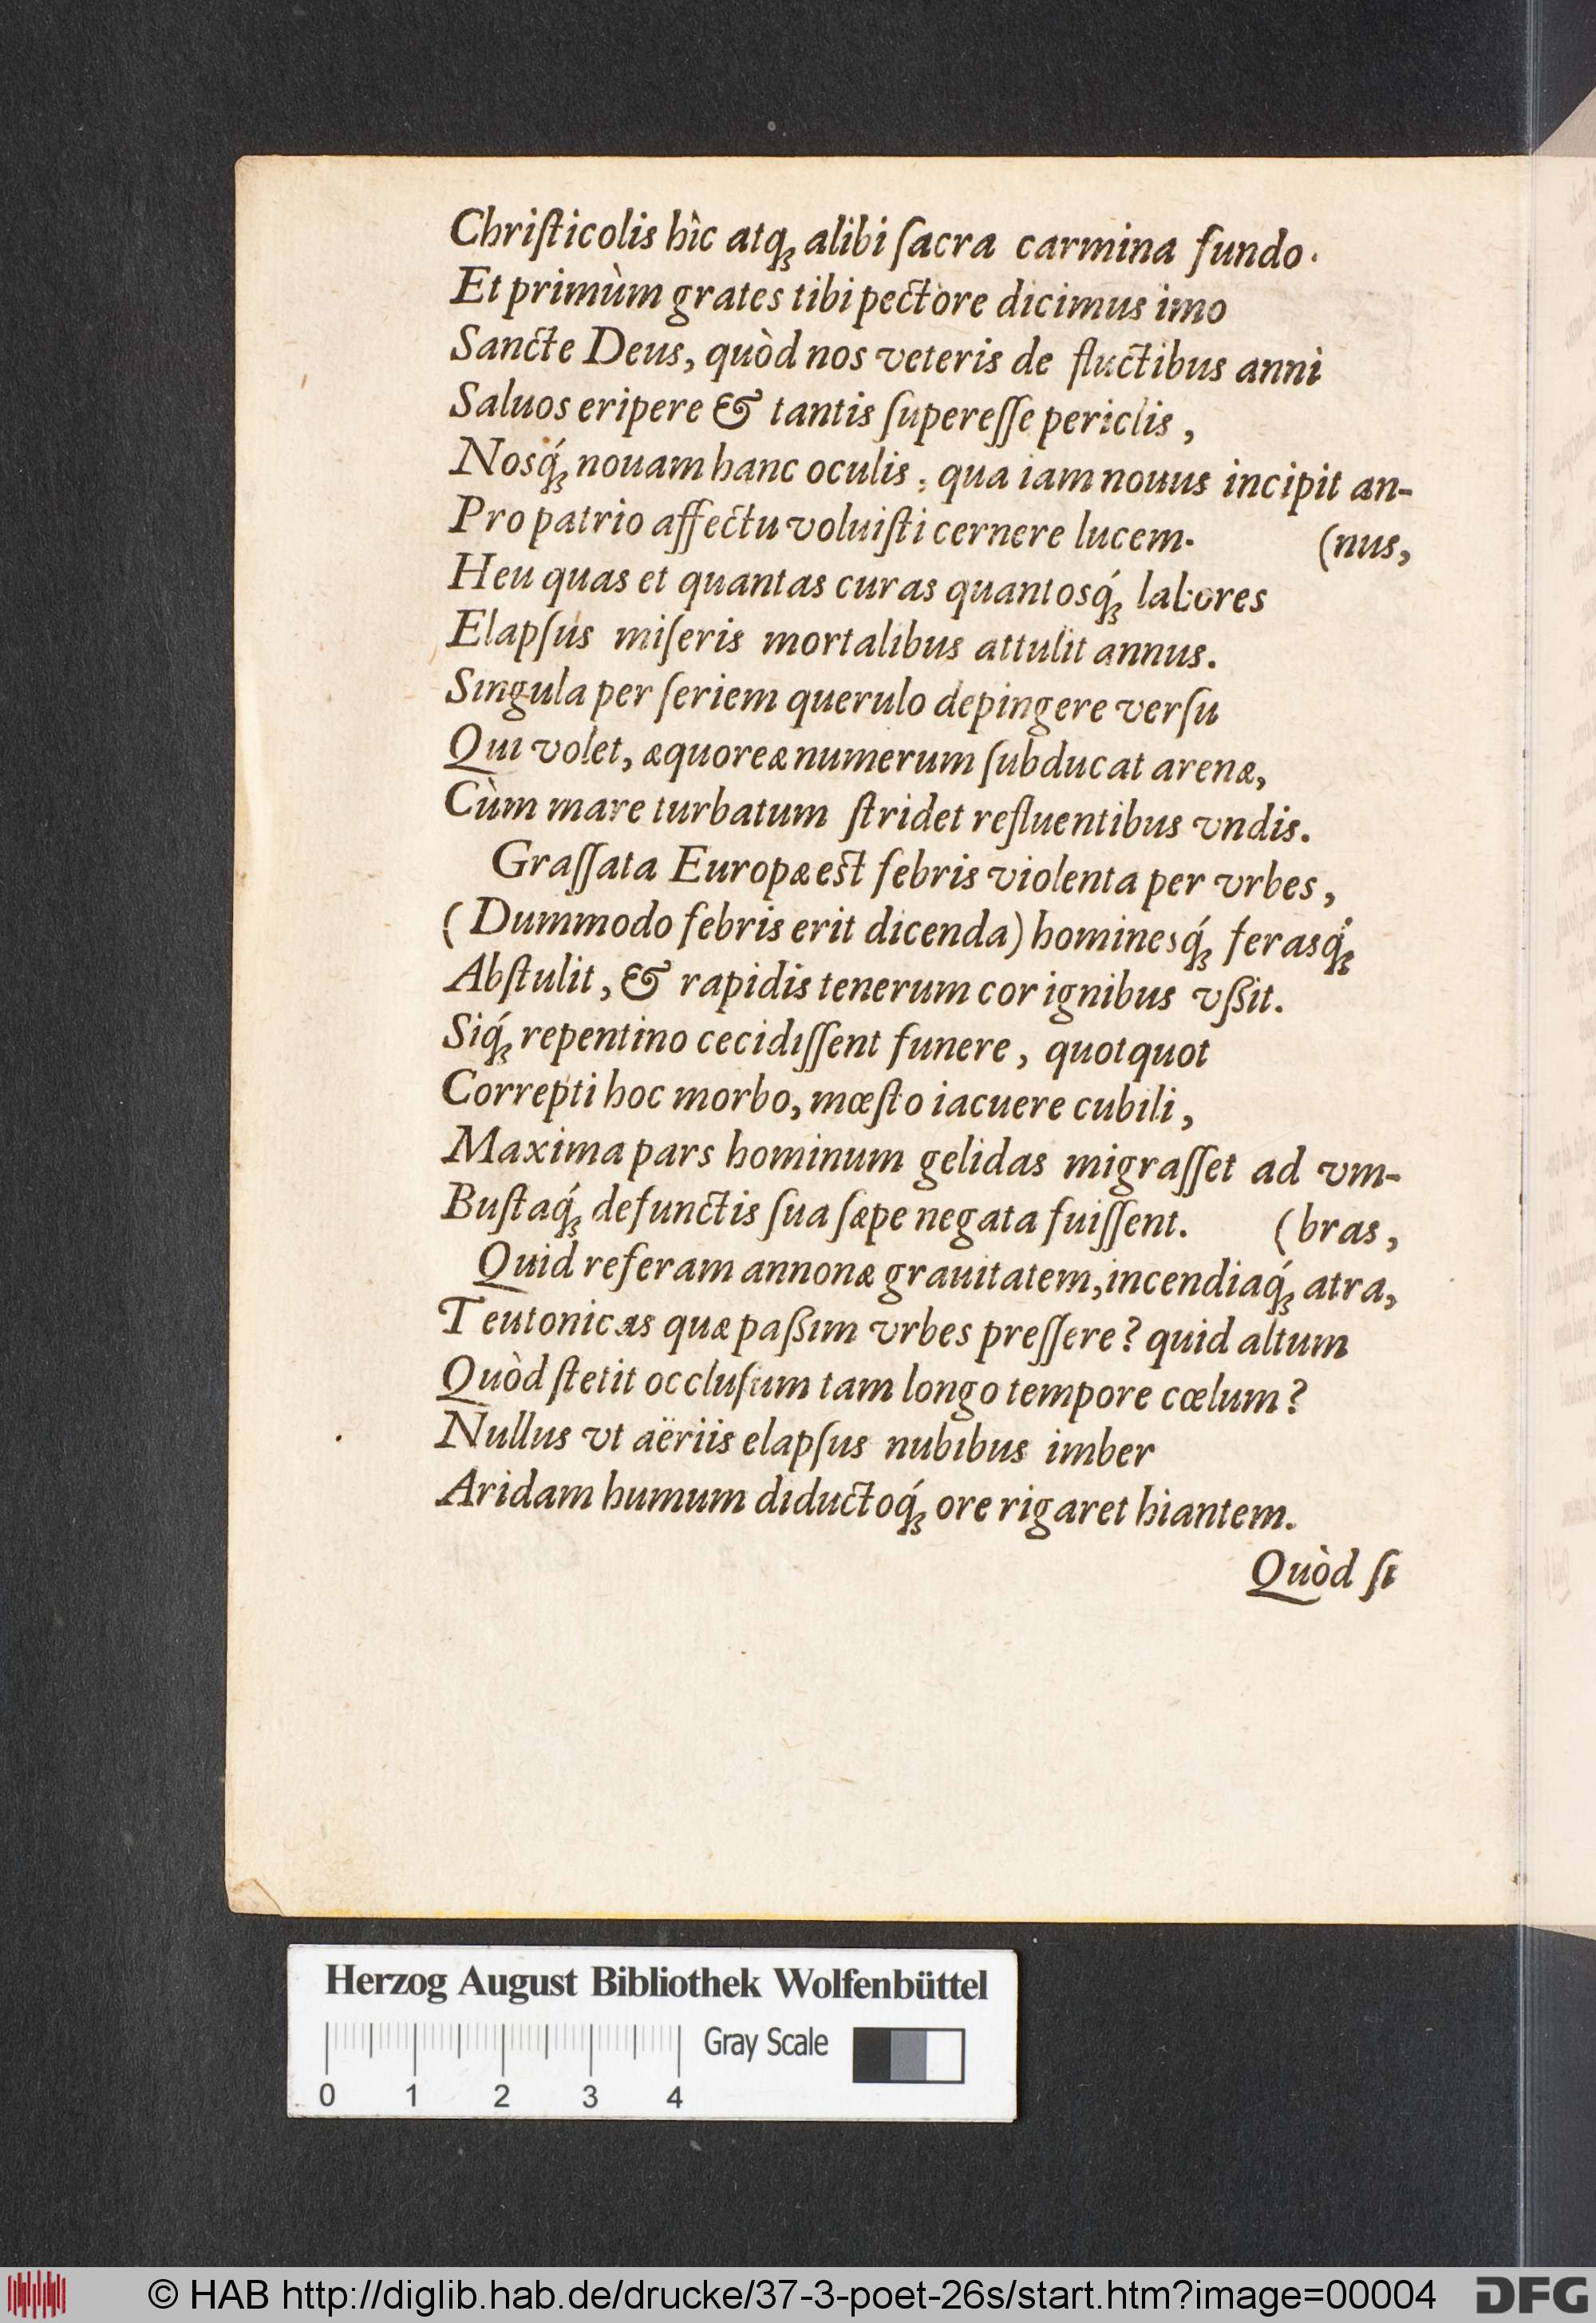 Chriſticolis hîc atq́ꝫ alibi ſacra carmina fundo.
Et primùm grates tibi pectore dicimus imo
Sancte Deus, quòd nos veteris de fluctibus anni
Saluos eripere & tantis ſupereſſe periclis,
Nosq́ꝫ nouam hanc oculis, qua iam nouus incipit an-
Pro patrio affectu voluiſti cernere lucem. (nus,
Heu quas et quantas curas quantosq́ꝫ labores
Elapſus miſeris mortalibus attulit annus.
Singula per ſeriem querulo depingere verſu
Qui volet, æquoreæ numerum ſubducat arenæ,
Cùm mare turbatum ſtridet refluentibus vndis.
Graſſata Europæ eſt febris violenta per vrbes,
(Dummodo febris erit dicenda) hominesq́ꝫ ferasq́ꝫ
Abſtulit, & rapidis tenerum cor ignibus vßit.
Siq́ꝫ repentino cecidiſſent funere, quotquot
Correpti hoc morbo, mœſto iacuere cubili,
Maxima pars hominum gelidas migraſſet ad vm-
Buſtaq́ꝫ defunctis ſua ſæpe negata fuiſſent. (bras,
Quid referam annonæ grauitatem, incendiaq́ꝫ atra,
Teutonicas quæ paßim vrbes preſſere? quid altum
Quòd ſtetit occluſum tam longo tempore cœlum?
Nullus vt aëriis elapſus nubibus imber
Aridam humum diductoq́ꝫ ore rigaret hiantem.
Quòd ſi
Herzog August Bibliothek Wolfenbüttel
Gray Scale
0 1 2 3 4
© HAB http://diglib.hab.de/drucke/37-3-poet-26s/start.htm?image=00004
DFG